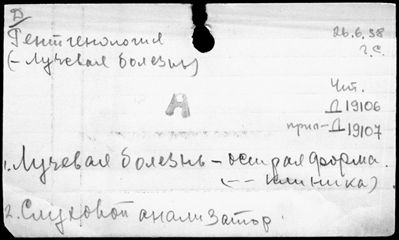 Д
Рентгенология
(-Лучевая болезнь)
26.6.58
г.с.
А
Чит.
Д 19106
прил-Д 19107
1. Лучевая болезнь – острая форма.
(-- клиника)
2. Слуховой анализатор.